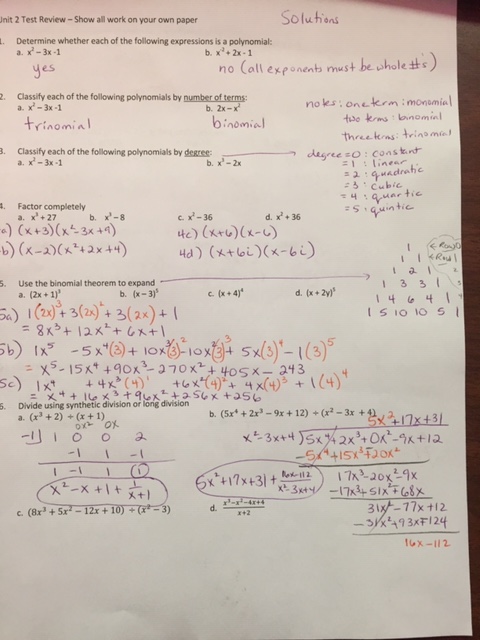 Unit 2 Test Review – Show all work on your own paper Solutions
1. Determine whether each of the following expressions is a polynomial:
a. x² – 3x -1 b. x² + 2x - 1
yes no (all exponents must be whole #'s)
2. Classify each of the following polynomials by number of terms:
a. x² – 3x -1 b. 2x – x²
trinomial binomial
notes: one term: monomial
two terms: binomial
three terms: trinomial
3. Classify each of the following polynomials by degree:
a. x² – 3x -1 b. x³ – 2x
degree = 0 : constant
= 1 : linear
= 2 : quadratic
= 3 : cubic
= 4 : quartic
= 5 : quintic
4. Factor completely
a. x³ + 27 b. x³ – 8 c. x² – 36 d. x² + 36
a) (x+3)(x²-3x+9) 4c) (x+6)(x-6)
b) (x-2)(x²+2x+4) 4d) (x+6i)(x-6i)
1 ← Row 0
1 1 ← Row 1
1 2 1 2
1 3 3 1 3
1 4 6 4 1
1 5 10 10 5 1
5. Use the binomial theorem to expand
a. (2x + 1)³ b. (x – 3)⁵ c. (x + 4)⁴ d. (x + 2y)⁵
5a) 1(2x)³ + 3(2x)² + 3(2x) + 1
= 8x³ + 12x² + 6x + 1
5b) 1x⁵ - 5x⁴(3) + 10x³(3)² - 10x²(3)³ + 5x(3)⁴ - 1(3)⁵
= x⁵ - 15x⁴ + 90x³ - 270x² + 405x - 243
5c) 1x⁴ + 4x³(4)¹ + 6x²(4)² + 4x(4)³ + 1(4)⁴
= x⁴ + 16x³ + 96x² + 256x + 256
6. Divide using synthetic division or long division
a. (x³ + 2) ÷ (x + 1) b. (5x⁴ + 2x³ – 9x + 12) ÷ (x² – 3x + 4)
0x² 0x
-1| 1 0 0 2
-1 1 -1
1 -1 1 1
x² - x + 1 + 1/x+1
5x² + 17x + 31
x² - 3x + 4 5x⁴ + 2x³ + 0x² - 9x + 12
-5x⁴ + 15x³ - 20x²
17x³ - 20x² - 9x
-17x³ + 51x² - 68x
31x² - 77x + 12
-31x² + 93x - 124
16x - 112
5x² + 17x + 31 + 16x-112/x²-3x+4
c. (8x³ + 5x² – 12x + 10) ÷ (x² – 3) d. x³–x²–4x+4/x+2